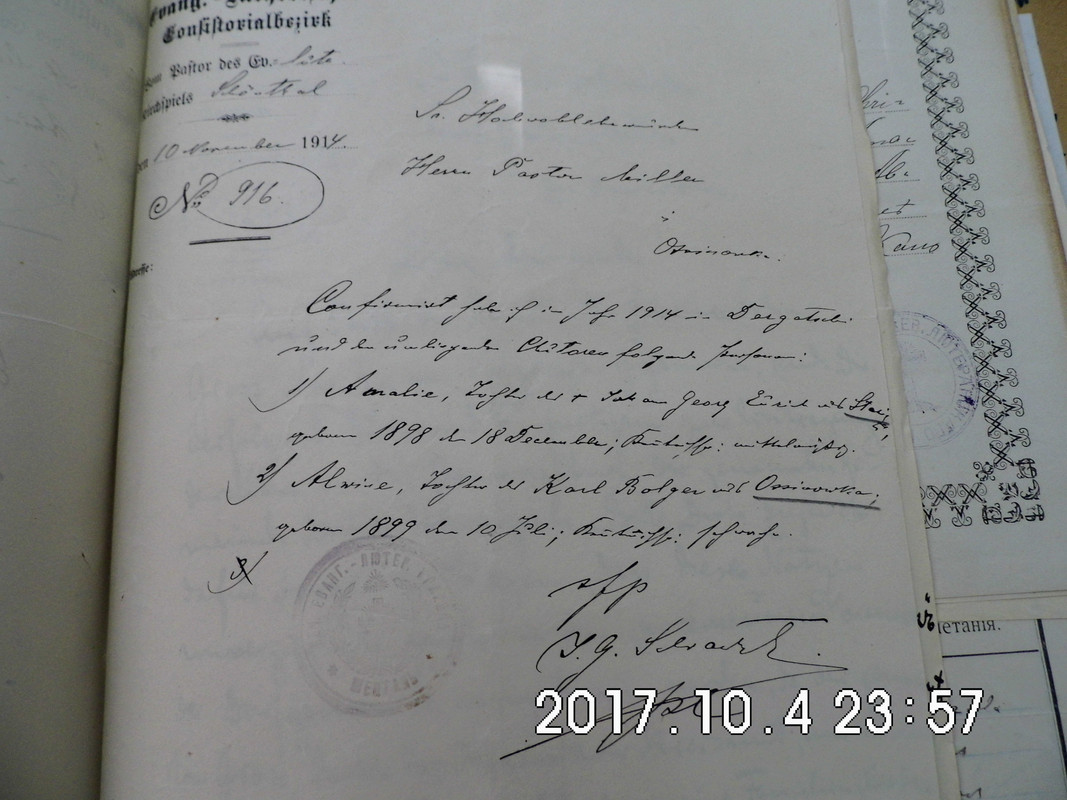 Evang.-
Consistorialbezirk
Vom Pastor des Ev.-Luth.
Kirchspiels Schöntal
den 10 November 1914.
No 916.
Adresse:
Sr. Hochwohlehrwürden
Herrn Pastor Miller
in
Osinowka.
Confirmirt habe ich im Jahre 1914 in Dergatschi
und den umliegenden Chutoren folgende Personen:
1) Amalie, Tochter des + Johann Georg Eurich aus
geboren 1898 den 18 December; Kenntnisse: mittelmässig.
2) Alwine, Tochter des Karl Bolger aus Ossinowka;
geboren 1899 den 10 Juli; Kenntnisse: schwach.
3)
I. G.
ЕВАНГ.-ЛЮТЕР.
ЛЮТЕР
летанія.
2017.10.4 23:57